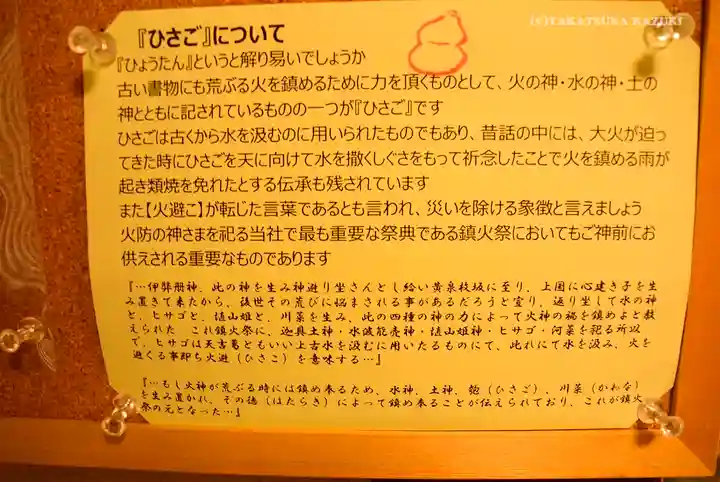 (c)TAKATSUKA KAZUKI
『ひさご』について
『ひょうたん』というと解り易いでしょうか
古い書物にも荒ぶる火を鎮めるために力を頂くものとして、火の神・水の神・土の
神とともに記されているものの一つが『ひさご』です
ひさごは古くから水を汲むのに用いられたものでもあり、昔話の中には、大火が迫っ
てきた時にひさごを天に向けて水を撒くしぐさをもって祈念したことで火を鎮める雨が
起き類焼を免れたとする伝承も残されています
また【火避こ】が転じた言葉であるとも言われ、災いを除ける象徴と言えましょう
火防の神さまを祀る当社で最も重要な祭典である鎮火祭においてもご神前にお
供えされる重要なものであります
『…伊弉册神、此の神を生み神避り坐さんとし給い黄泉枚坂に至り、上国に心建き子を生
み置きて来たから、後世その荒びに悩まされる事があるだろうと宣り、返り坐して水の神
と、ヒサゴと、埴山姫と、川菜を生み、此の四種の神の力によって火神の禍を鎮めよと教
えられた　これ鎮火祭に、迦具土神・水波能売神・埴山姫神・ヒサゴ・河菜を祀る所以
で、ヒサゴは天吉葛ともいい上古水を汲むに用いたるものにて、此れにて水を汲み、火を
避くる事即ち火避（ひさこ）を意味する…』
『…もし火神が荒ぶる時には鎮め奉るため、水神、土神、匏（ひさご）、川菜（かわな）
を生み置かれ、その徳（はたらき）によって鎮め奉ることが伝えられており、これが鎮火
祭の元となった…』